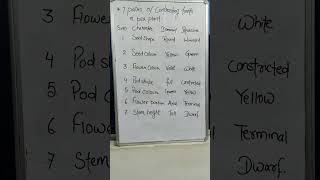 * 7 pairs of Contrasting traits
in pea plant
S.no Character Dominant Recessive
Seed Shape Round Wrinkled
2 Seed Colour Yellow Green
3 Flower Colour Violet White
4 Pod shape Full Constricted
5 Pod Colour Green Yellow
6 Flower position Axial Terminal
7 Stem height Tall Dwarf
3 Flower
4 Pod
5 Pod
6 Flow
7 Stem
White
Constricted
Yellow
Terminal
Dwarf